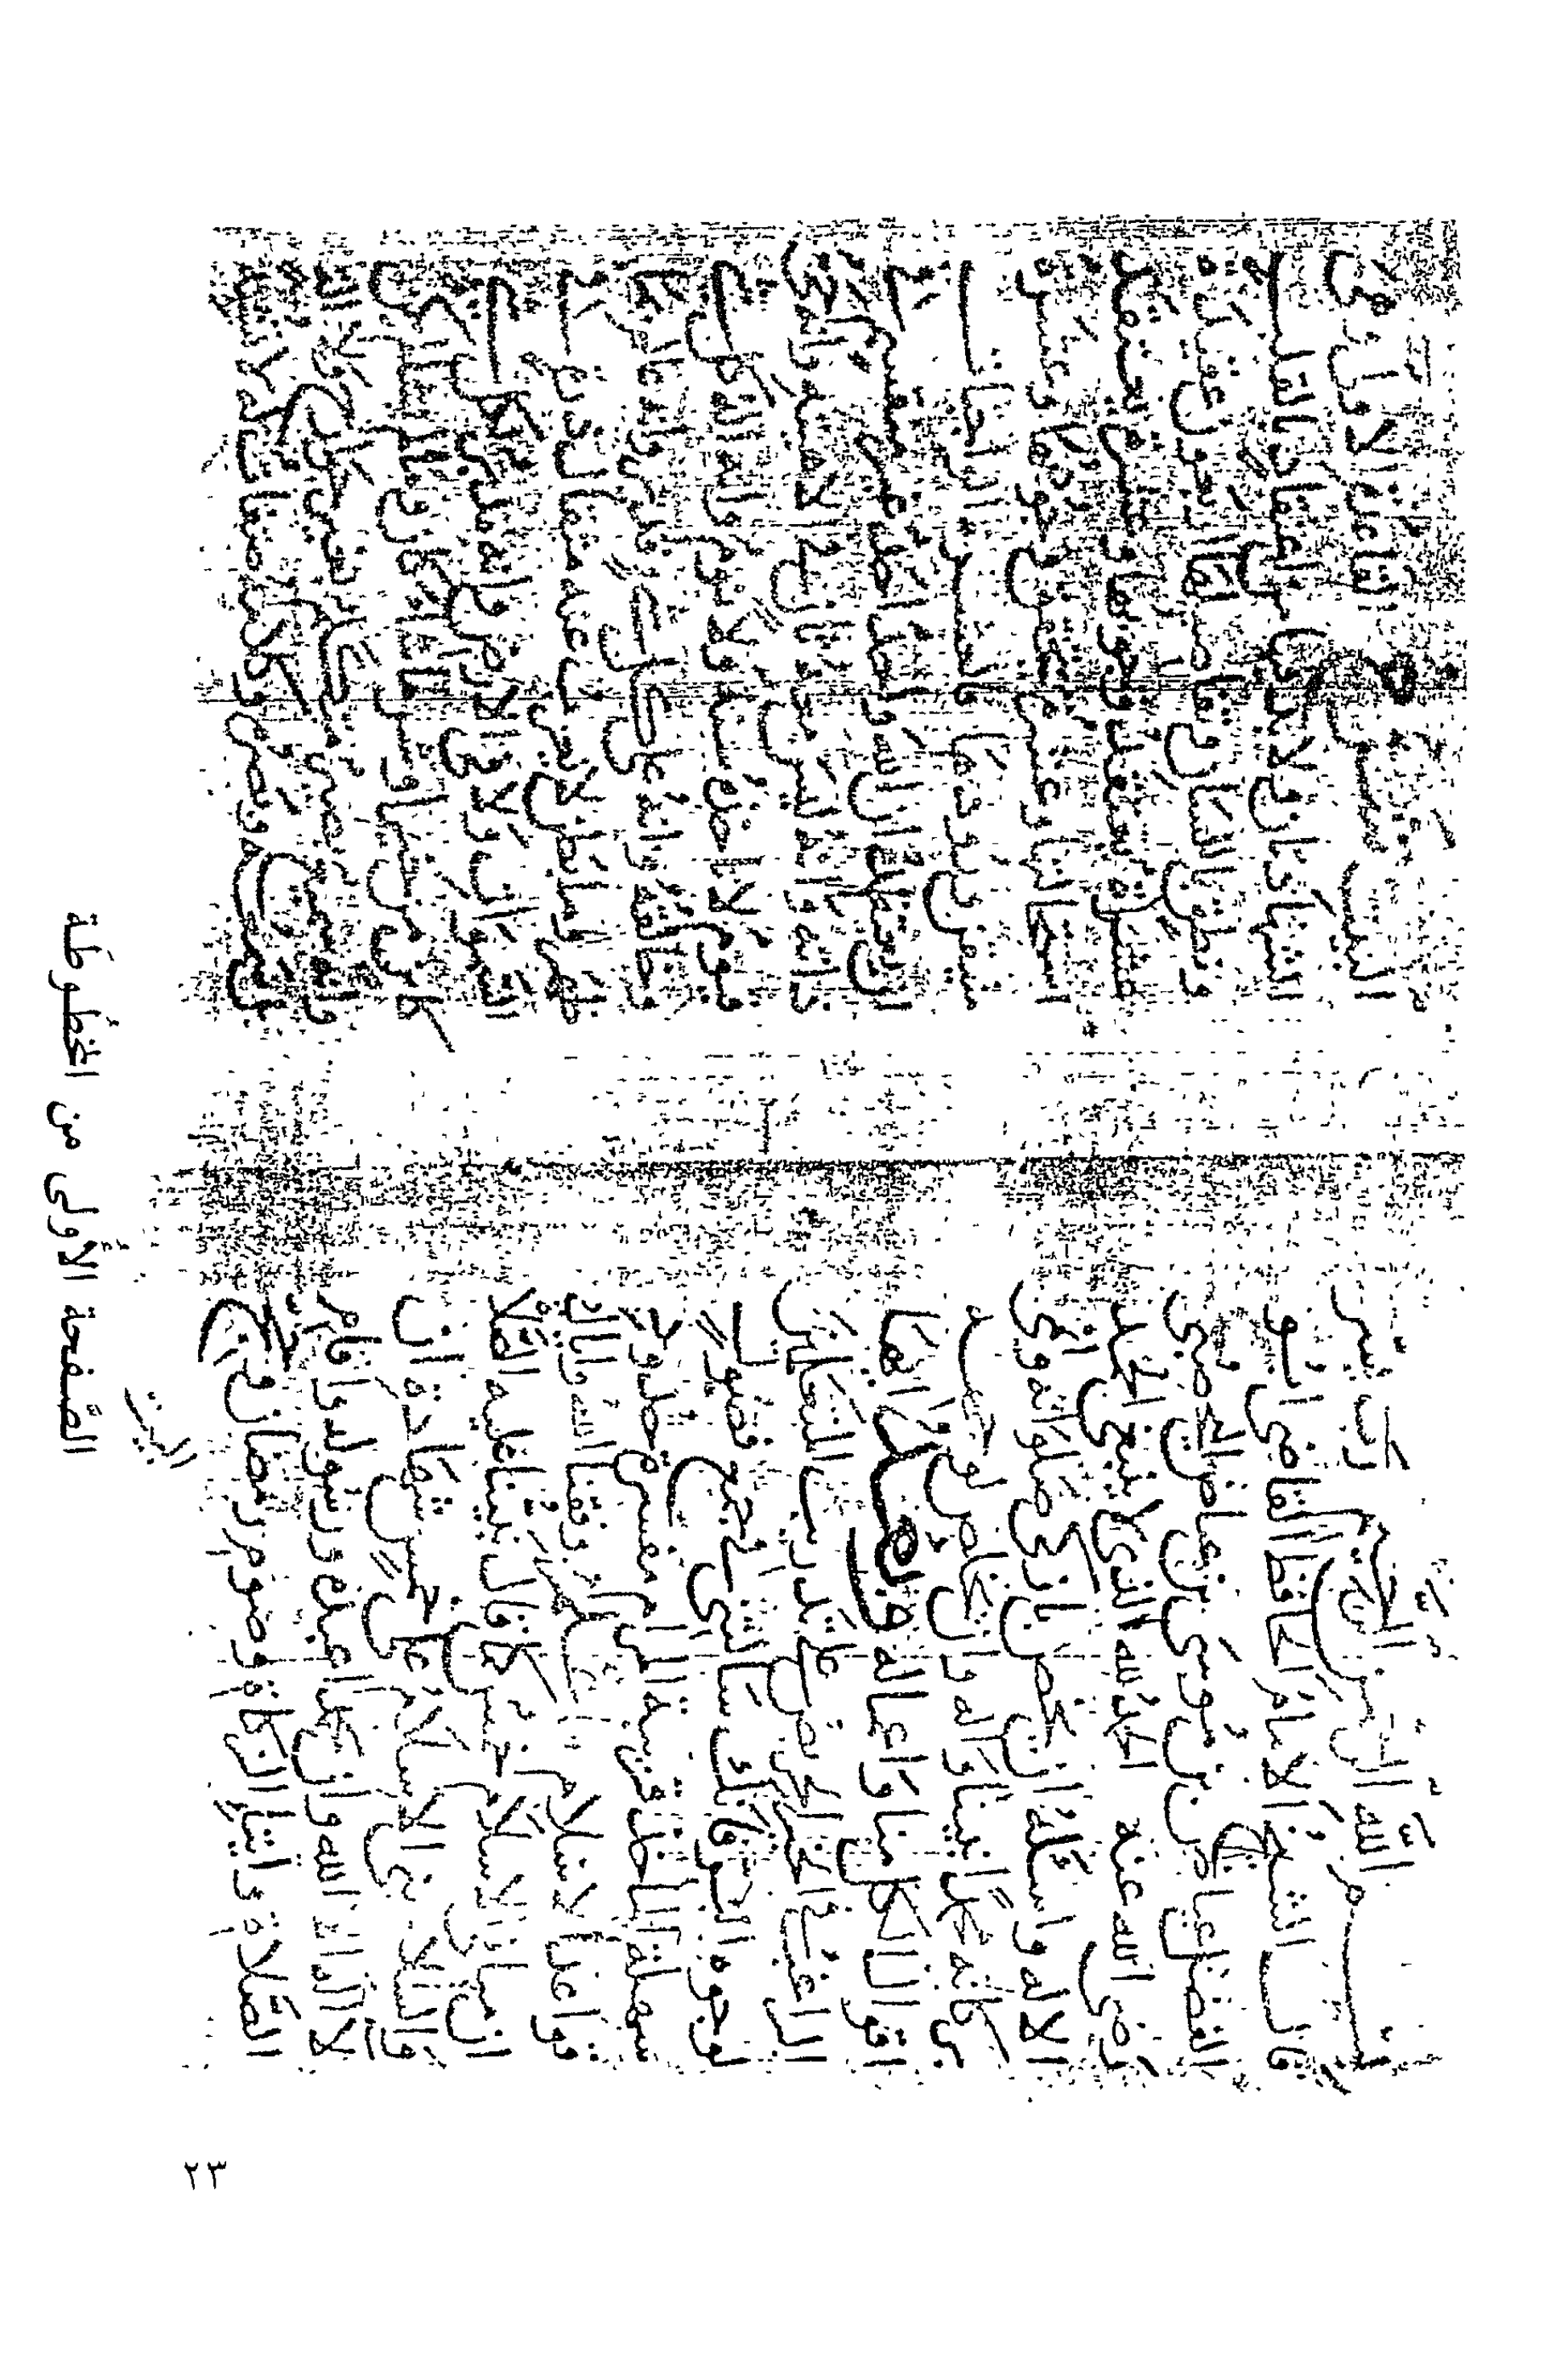 بسم الله الرحمن الرحيم
قال الشيخ الامام الحافظ القاضي ابو
الفضل عياض بن موسى بن عياض اليحصبي
رضي الله عنه الحمد لله الذي لا ينبغي الحمد
الا له واسئله ان يخص بازكى صلواته وانمى
بركاته محمدا نبيه واله وان يخلص لوجهه
اقوالنا كلها واعمالنا ايها
الراغب في الخير الحريص على تدريب المتعلمين
لوجوه البر فانك سالتني في جمع فصول
سهلة الماخذ قريبة المرام مفسرة حدود
قواعد الاسلام اعلم وفقنا الله واياك
ان مباني الاسلام خمس كما قال نبينا عليه السلام
قال بني الاسلام على خمس شهادة ان
لا اله الا الله وان محمدا عبده ورسوله واقام
الصلاة وايتاء الزكاة وصوم رمضان وحج
البيت
البيت القاعدة الاولى وهي
الشهادتان ولا بد من اعتقاد بالقلب
ونطق باللسان وتفاصيلها اربعون عقيدة
عشرة يعتقد وجوبها وعشرة يعتقد
استحالتها وعشرة يتحقق وجودها وعشرة
متيقن ورودها فالعشر الواجبات
ان يعتقد ان الله واحد غير منقسم
في ذاته وانه ليس معه ثان في الاهيته وانه
حي قيوم لا تاخذه سنة ولا نوم وانه اله كل
شيء وخالقه وانه على كل شيء قدير وانه عالم
بما ظهر وما بطن لا يعزب عنه مثقال ذرة في
السموات ولا في الارض وانه مريد لكل
كائن من خير او شر ما شاء كان وما لم يشا لم يكن
وانه سميع بصير متكلم بغير جارحة ولا الة
بل سمعه وبصره وكلامه صفات له لا تشبه
الصّفحة الأولى من المخطُوطَة
٢٣